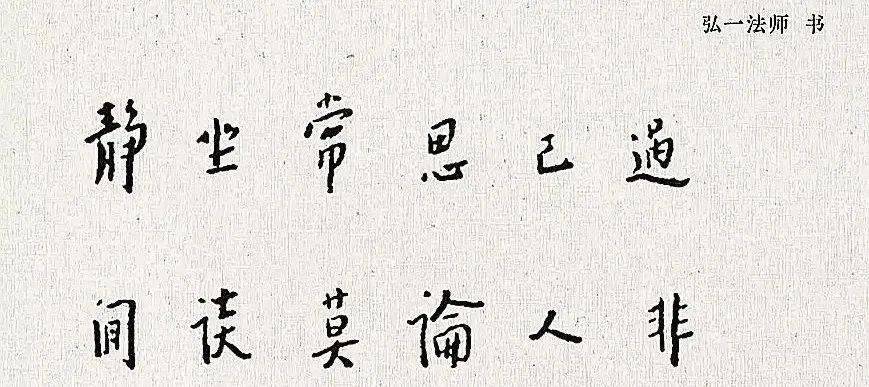 弘一法师 书
静坐常思己過
間谈莫論人非